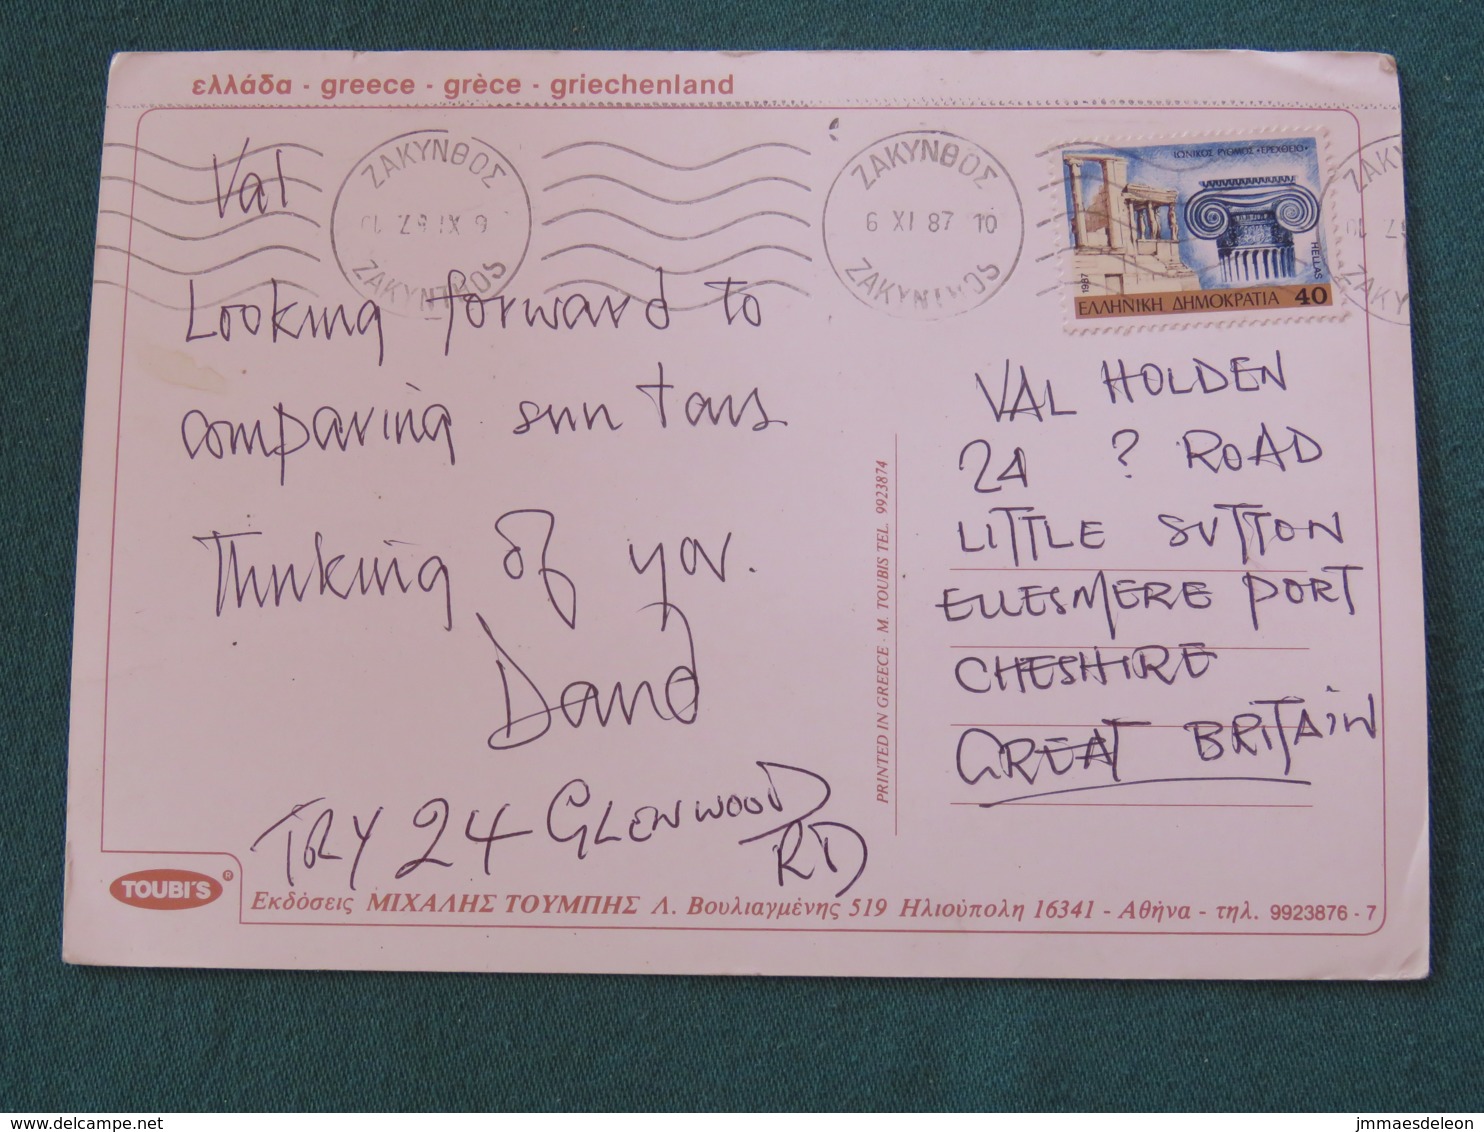 ελλάδα - greece - grèce - griechenland
ΖΑΚΥΝΘΟΣ
ΖΑΚΥΝΘΟΣ
ΖΑΚΥΝΘΟΣ
6 XI 87 10
ΖΑΚΥΝΘΟΣ
ΙΩΝΙΚΟΣ ΡΥΘΜΟΣ «ΕΡΕΧΘΕΙΟ»
HELLAS
1987
ΕΛΛΗΝΙΚΗ ΔΗΜΟΚΡΑΤΙΑ 40
Val
Looking forward to
comparing sun tans
Thinking of you.
David
TRY 24 GLENWOOD
RD
PRINTED IN GREECE - M. TOUBIS TEL. 9923874
VAL HOLDEN
24 ? ROAD
LITTLE SUTTON
ELLESMERE PORT
CHESHIRE
GREAT BRITAIN
TOUBI'S ®
Εκδόσεις ΜΙΧΑΛΗΣ ΤΟΥΜΠΗΣ Λ. Βουλιαγμένης 519 Ηλιούπολη 16341 - Αθήνα - τηλ. 9923876 - 7
delcampe.net
jmmaesdeleon